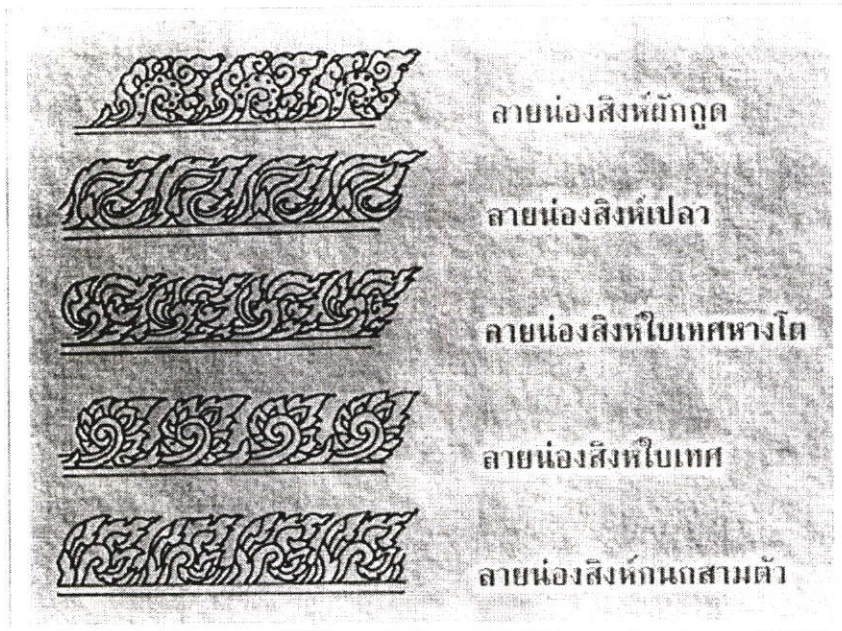 ลายน่องสิงห์ผักกูด
ลายน่องสิงห์เปลว
ลายน่องสิงห์ใบเทศหางโต
ลายน่องสิงห์ใบเทศ
ลายน่องสิงห์กนกสามตัว